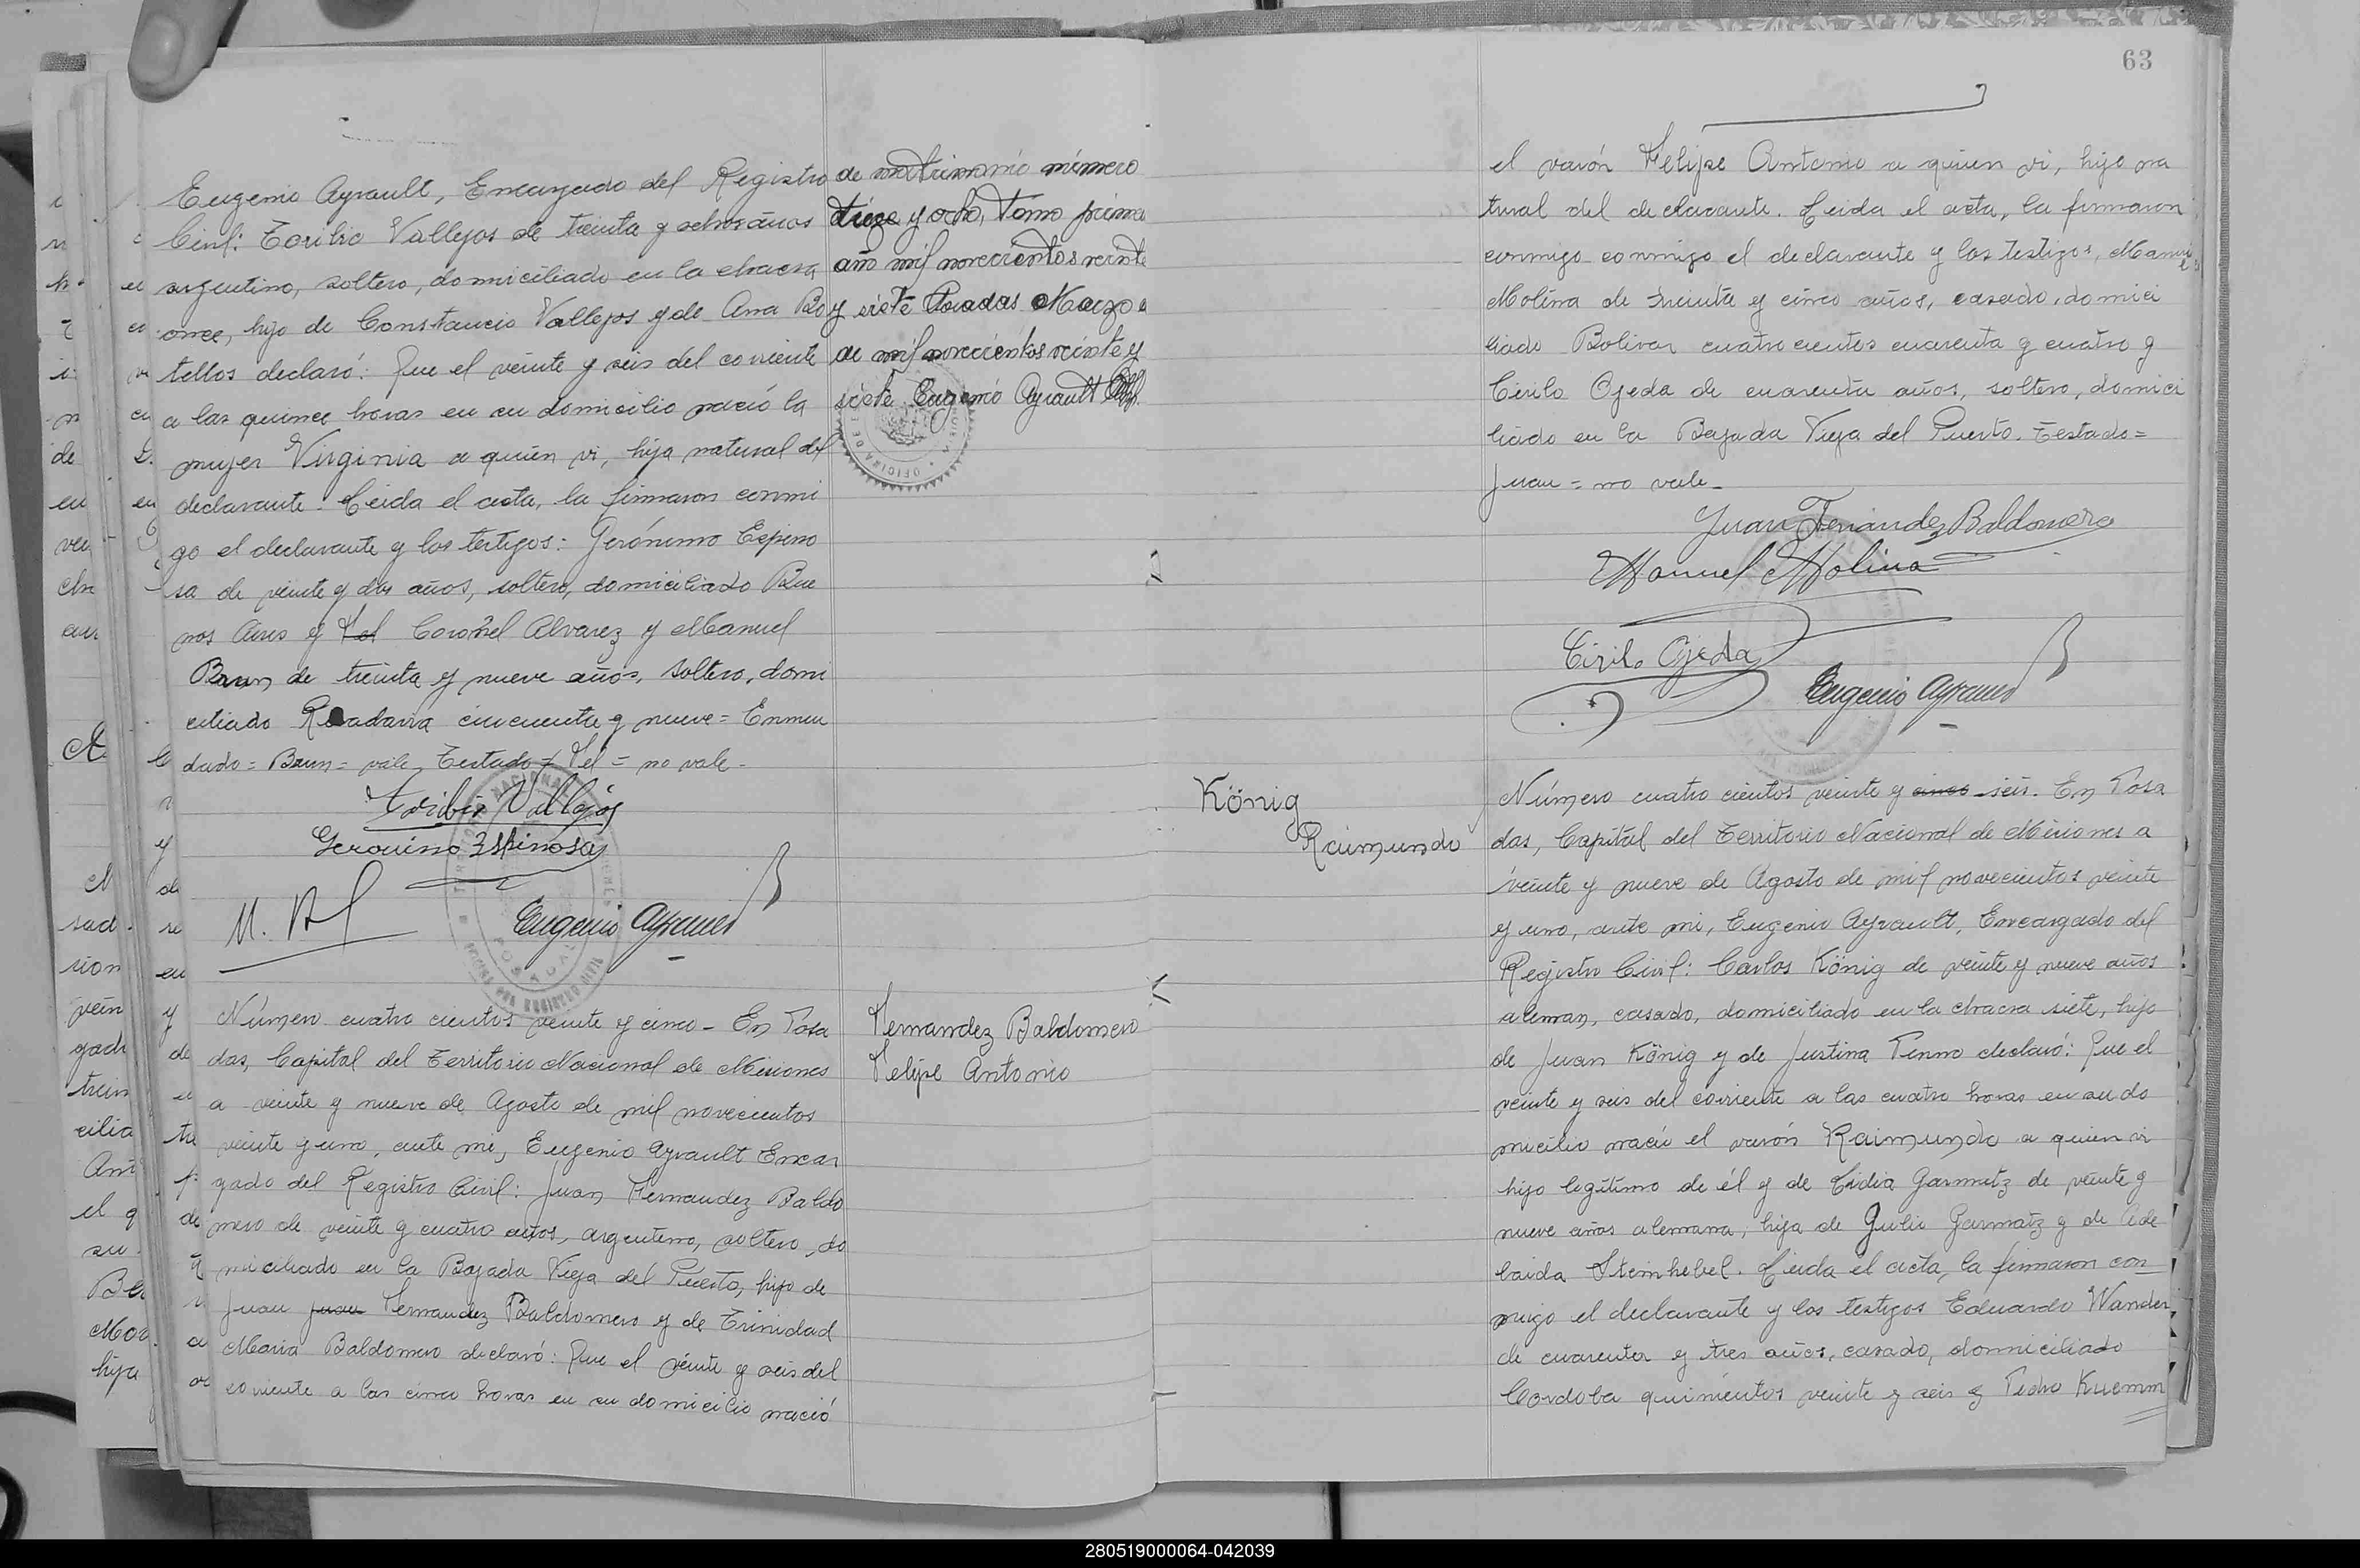 Eugenio Ayrault, Encargado del Registro
Civil: Toribio Vallejos de treinta y ocho años
argentino, soltero, domiciliado en la chacra
once, hijo de Constancio Vallejos y de Ana Bo
tellos declaró: Que el veinte y seis del corriente
a las quince horas en su domicilio nació la
mujer Virginia a quien vi, hija natural del
declarante. Leida el acta, la firmaron conmi
go el declarante y los testigos: Gerónimo Espino
sa de veinte y dos años, soltero, domiciliado Bue
nos Aires y Fel Coronel Alvarez y Manuel
Brun de treinta y nueve años, soltero, domi
ciliado Rivadavia cincuenta y nueve = Enmen
dado = Brun = vale Testado = Fel = no vale -
Toribio Vallejos
Geronimo Espinosa
Eugenio Ayrault
de matrimonio número
diez y ocho, tomo prime
año mil novecientos veinte
y siete Posadas Marzo
de mil novecientos veinte y
siete Eugenio Ayrault
Número cuatro cientos veinte y cinco - En Posa
das, Capital del Territorio Nacional de Misiones
a veinte y nueve de Agosto de mil novecientos
veinte y uno, ante mi, Eugenio Ayrault Encar
gado del Registro Civil: Juan Fernandez Baldo
mero de veinte y cuatro años, argentino, soltero, do
miciliado en la Bajada Vieja del Puerto, hijo de
Juan Juan Fernandez Baldomero y de Trinidad
Maria Baldomero declaró: Que el veinte y seis del
corriente a las cinco horas en su domicilio nació
Fernandez Baldomero
Felipe Antonio
63
el varón Felipe Antonio a quien vi, hijo na
tural del declarante. Leida el acta, la firmaron
conmigo conmigo el declarante y los testigos, Manuel
Molina de treinta y cinco años, casado, domici
liado Bolivar cuatro cientos cuarenta y cuatro y
Cirilo Ojeda de cuarenta años, soltero, domici
liado en la Bajada Vieja del Puerto. Testado =
Juan = no vale -
Juan Fernandez Baldomero
Manuel Molina
Cirilo Ojeda
Eugenio Ayrault
König
Raimundo
Número cuatro cientos veinte y cinco seis. En Posa
das, Capital del Territorio Nacional de Misiones a
veinte y nueve de Agosto de mil novecientos veinte
y uno, ante mi, Eugenio Ayrault, Encargado del
Registro Civil: Carlos König de veinte y nueve años
aleman, casado, domiciliado en la chacra siete, hijo
de Juan König y de Justina declaró: Que el
veinte y seis del corriente a las cuatro horas en su do
micilio nació el varón Raimundo a quien vi
hijo legítimo de él y de Lidia Garmatz de veinte y
nueve años alemana, hija de Julio Garmatz y de Ade
laida Steinhebel. Leida el acta, la firmaron con
migo el declarante y los testigos Eduardo Wander
de cuarenta y tres años, casado, domiciliado
Cordoba quinientos veinte y seis y Pedro Kuemm
280519000064-042039